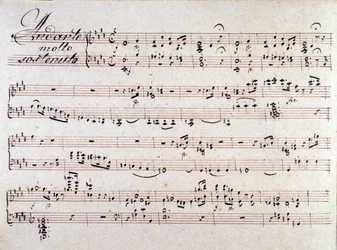 Andante
molto
sostenuto